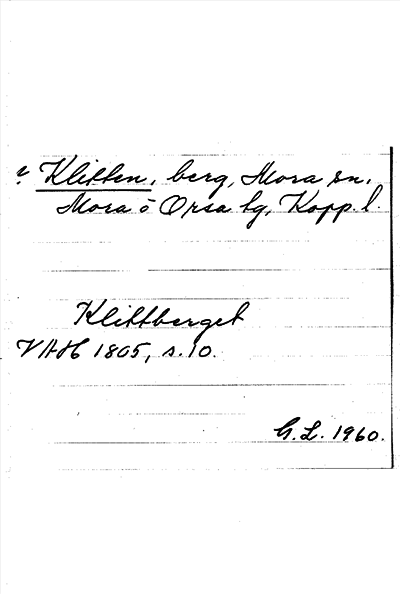 ? Klitten, berg, Mora sn,
Mora o Orsa tg, Kopp. l.
Klittberget
VAH 1805, s. 10.
G.L. 1960.